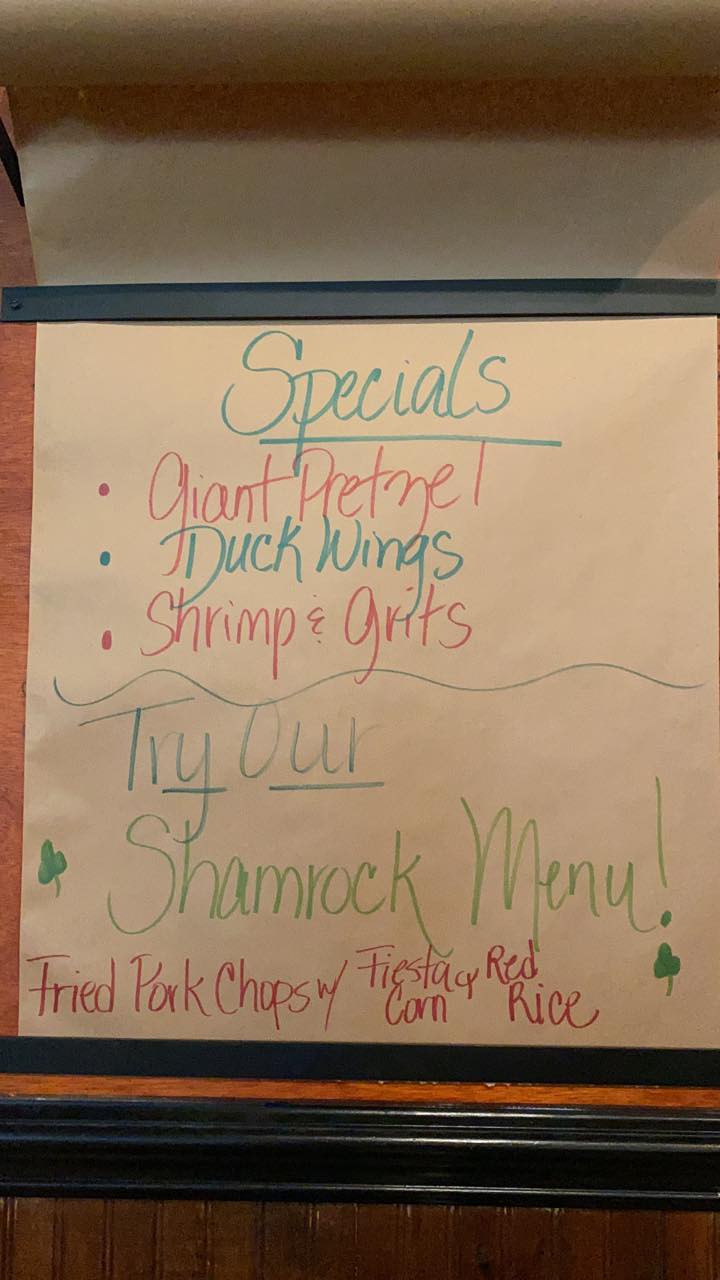 Specials
• Giant Pretzel
• Duck Wings
• Shrimp & Grits
Try Our
Shamrock Menu!
Fried Pork Chops w/ Fiesta Corn & Red Rice